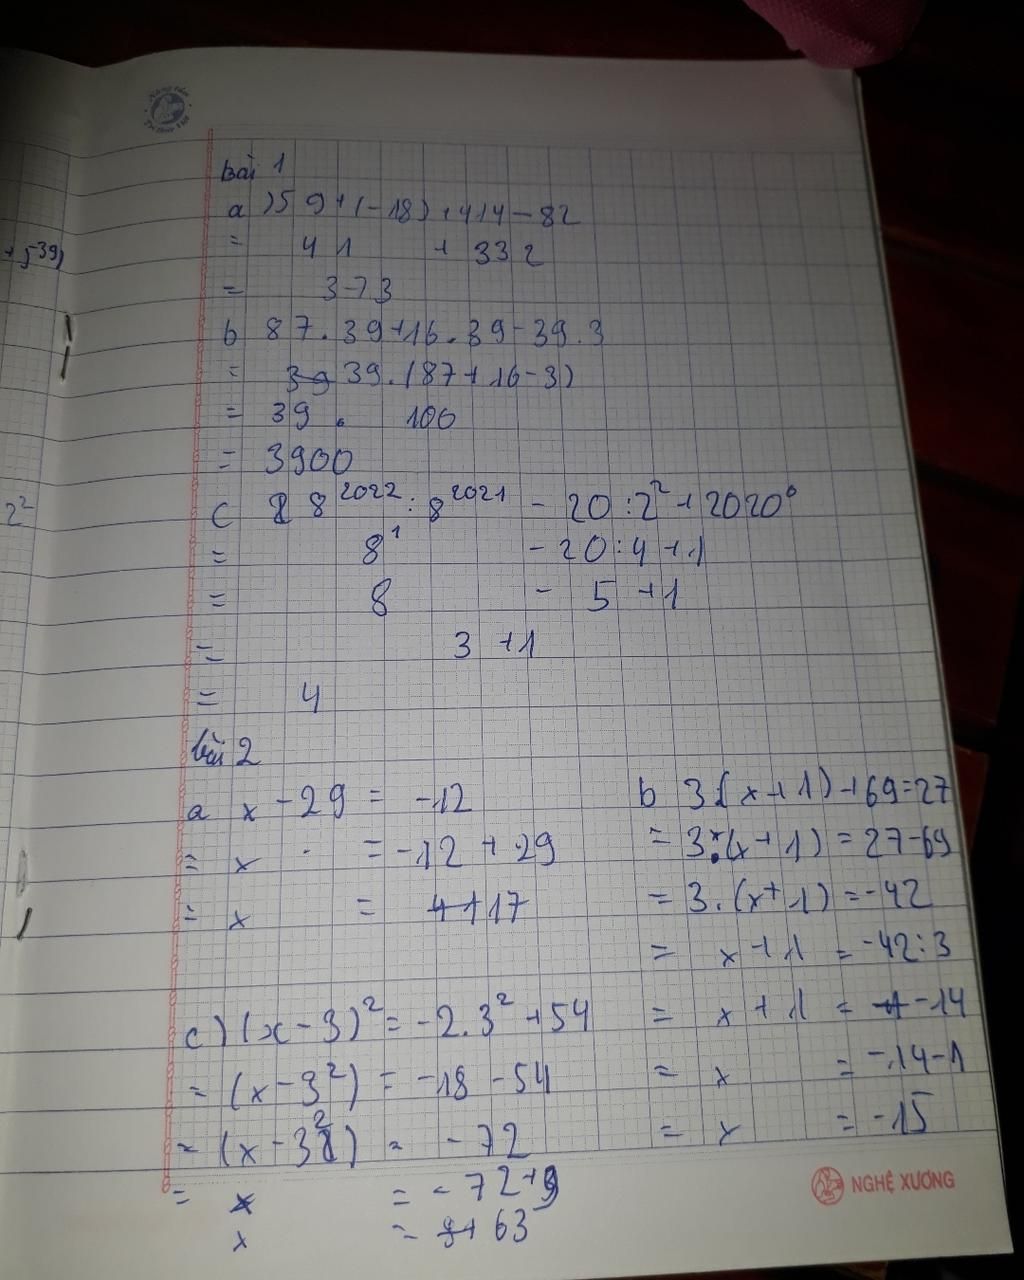 +5³⁹)
2²
bài 1
a )59+(-18)+414-82
= 41 + 332
= 373
b 87.39+16.39-39.3
= 39.(87+16-3)
= 39 . 100
= 3900
c 8²⁰²² : 8²⁰²¹ - 20:2²+2020⁰
= 8¹ - 20:4+1
= 8 - 5 +1
= 3 +1
= 4
bài 2
a x - 29 = -12
= x = -12 + 29
= x = 17
b 3.(x+1)+69=27
= 3.(x+1) = 27-69
= 3.(x+1) = -42
= x+1 = -42:3
= x+1 = -14
= x = -14-1
= x = -15
c) (x-3)² = -2.3²+54
= (x-3²) = -18 -54
= (x-3²) = -72
= x = -72+9
x = 63
NGHỆ XƯƠNG